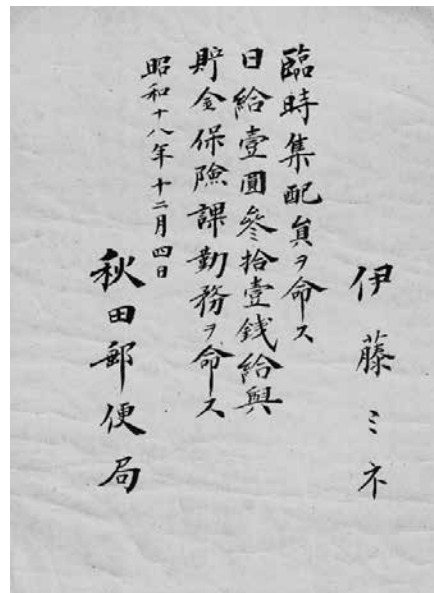 伊藤ミネ
臨時集配員ヲ命ス
日給壹圓參拾壹銭給與
貯金保險課勤務ヲ命ス
昭和十八年十二月四日
秋田郵便局